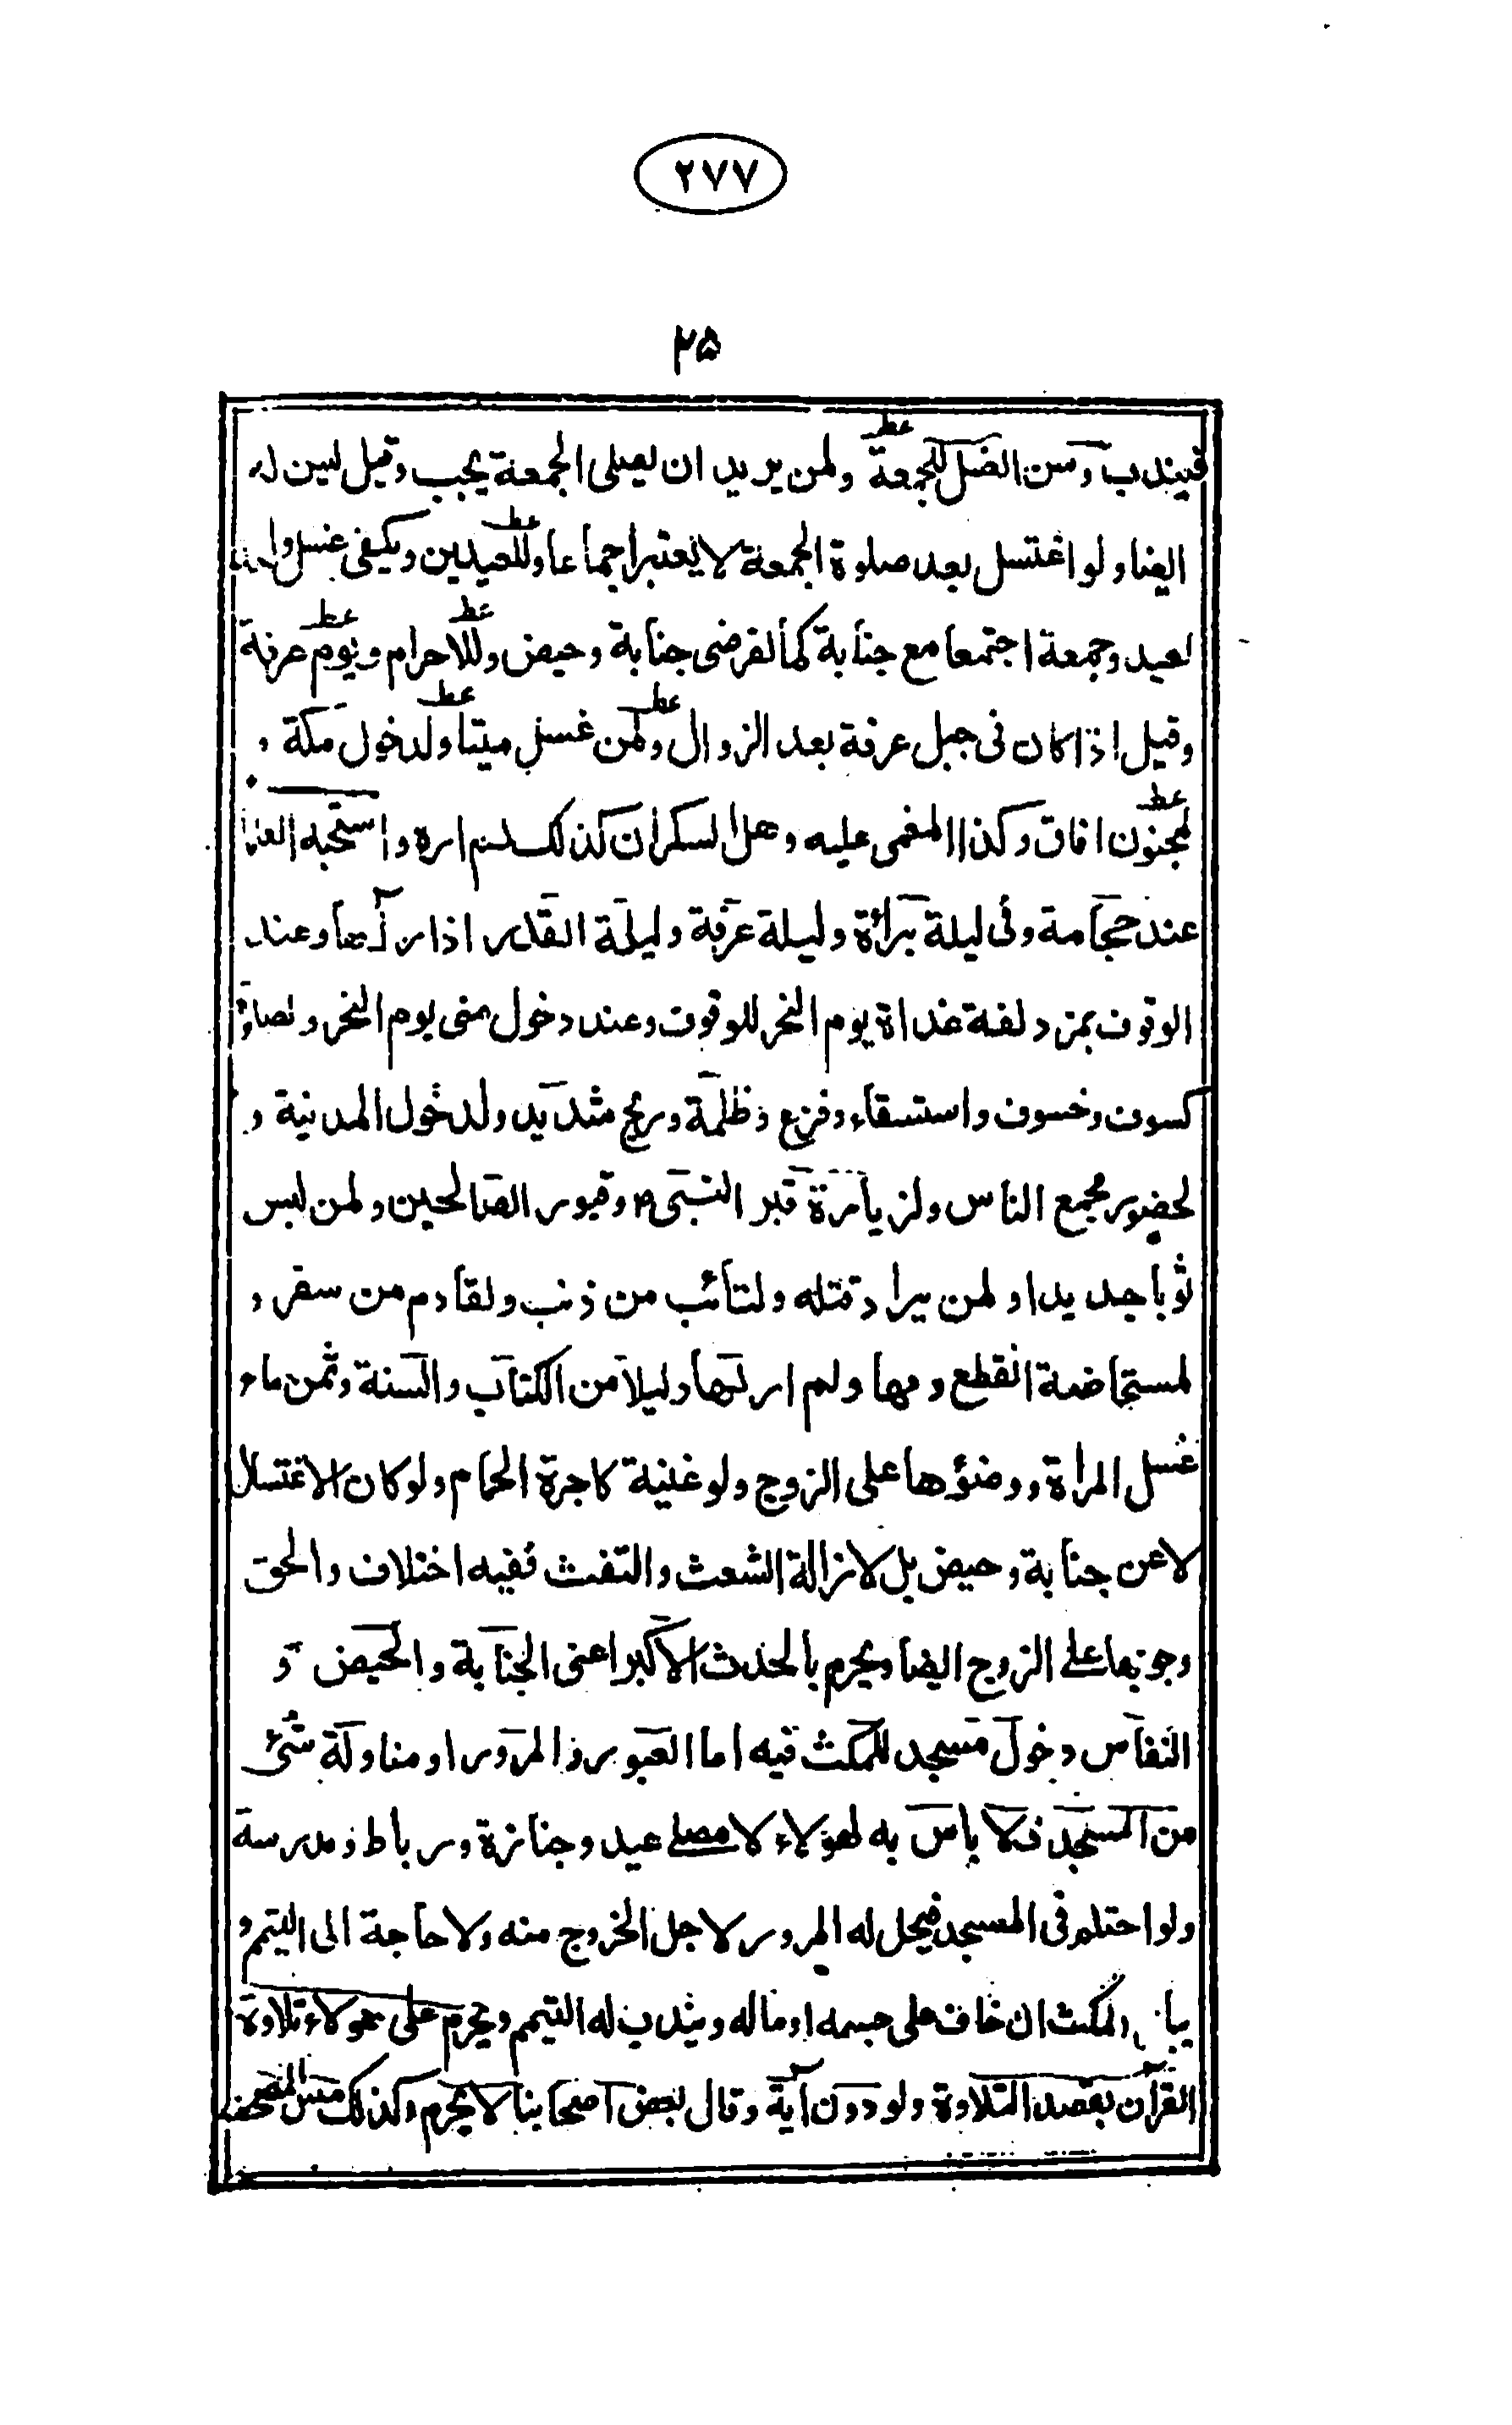 ٢٧٧
٢٥
فيندب وسن الغسل للجمعة ولمن يريد ان يصلى الجمعة يجب وقيل يسن له
ايضا ولو اغتسل بعد صلوة الجمعة لا يعتبر اجماعا وللعيدين ويكفى غسل واحد
لعيد وجمعة اجتمعا مع جنابة كما لفرضى جنابة وحيض وللاحرام ويوم عرفة
وقيل اذا كان فى جبل عرفة بعد الزوال ولمن غسل ميتا ولدخول مكة و
لمجنون افاق وكذا المغمى عليه وهل السكران كذلك لم اره واستحبه
عند حجامة وفى ليلة برائة وليلة عرفة وليلة القدر اذا رآها وعند
الوقوف بمزدلفة غداة يوم النحر للوقوف وعند دخول منى يوم النحر ولصلوة
كسوف وخسوف واستسقاء وفزع وظلمة وريح شديد ولدخول المدينة و
لحضور مجمع الناس ولزيارة قبر النبى وقبور الصالحين ولمن لبس
ثوبا جديدا ولمن يراد قتله ولتائب من ذنب ولقادم من سفر و
لمستحاضة انقطع دمها ولم ار لها دليلا من الكتاب والسنة وثمن ماء
غسل المرأة ووضؤها على الزوج ولو غنية كاجرة الحمام ولو كان الاغتسال
لا عن جنابة وحيض بل لازالة الشعث والتفث ففيه اختلاف والحق
وجوبها على الزوج ايضا ويحرم بالحدث الاكبر اعنى الجنابة والحيض و
النفاس دخول مسجد للمكث فيه اما العبور والمرور او مناولة شئ
من المسجد فلا باس به لهؤلاء لا مصلى عيد وجنازة ورباط ومدرسة
ولو احتلم فى المسجد فيحل له المرور لاجل الخروج منه ولا حاجة الى التيمم و
المكث ان خاف على جسمه او ماله ويندب له التيمم ويحرم على هولاء تلاوة
القرآن بقصد التلاوة ولو دون آية وقال بعض اصحابنا لا يحرم وكذلك مس المصحف